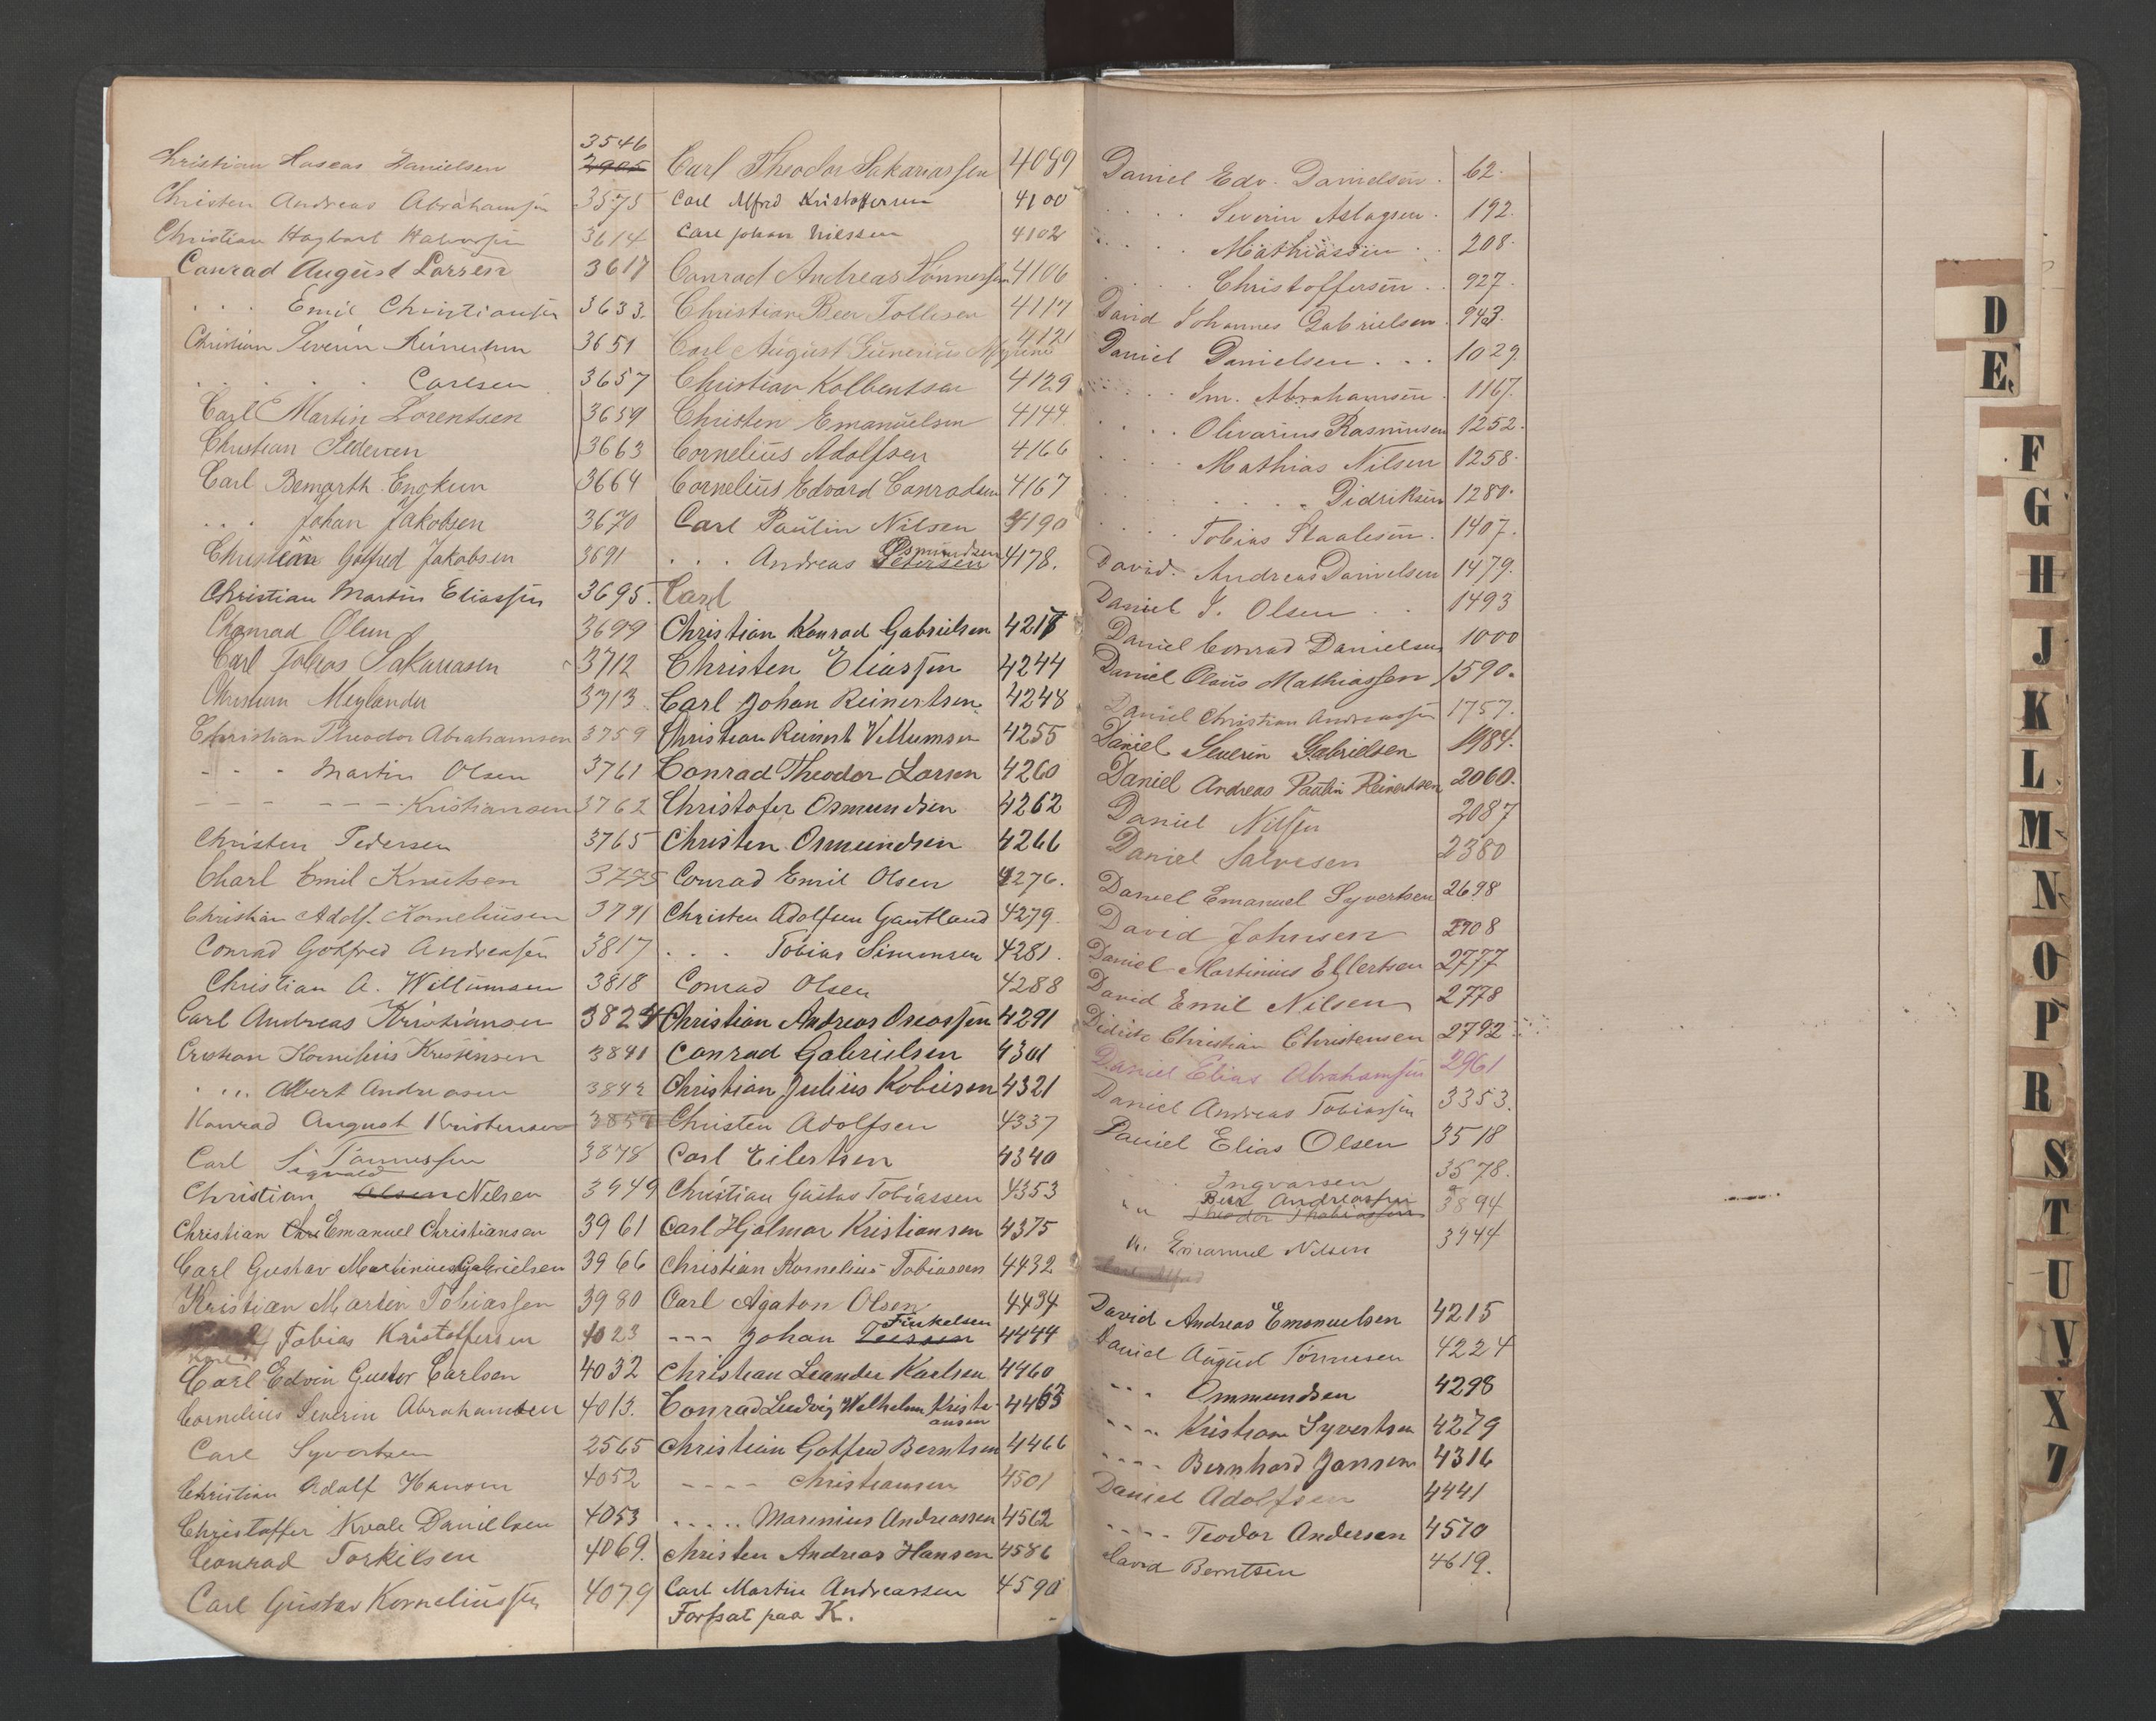 3546
Christian Haseas Danielsen 2905
Christen Andreas Abrahamsen 3575
Christian Hagbart Halvorsen 3614
Conrad August Larsen 3617
. . . Emil Christiansen 3633.
Christian Severin Reinertsen 3651
. . . . . Carlsen 3657
Carl Martin Lorentsen 3659
Christian Pedersen 3663
Carl Bemarth 3664
. . . Johan Jakobsen 3670
Christian Gotfred Jakobsen 3691
Christian Martin Eliassen 3695.
Conrad Olsen 3699
Carl Tobias Sakariasen 3712
Christian Meglander 3713
Christian Theodor Abrahamsen 3759
- - - Martin Olsen 3761
- - - - - - Kristiansen 3762
Christen Pedersen 3765
Charl Emil Knutsen 3775
Christian Adolf. Korneliusen 3791
Conrad Gotfred Andreasen 3817
Christian A. Willumsen 3818
Carl Andreas Kristiansen 3824
Cristian Kornelius Kristensen 3841
. ... Albert Andreasen 3842
Konrad August Kristensen
Carl Sigvald Tønnessen 3878
Christian Olsen Nilsen 3949
Christian Chr Emanuel Christiansen 3961
Carl Gustav Martinius Gabrielsen 3966
Kristian Martin Tobiassen 3980
Tobias Kristoffersen 4023
Carl Edvin Gustav Carlsen 4032
Cornelius Severin Abrahamsen 4013.
Carl Syvertsen 2565
Christian Adolf Hansen 4052
Christoffer Kvale Danielsen 4053
Conrad Torkilsen 4069.
Carl Gustav Korneliussen 4079
Carl Theodor Sakariassen 4089
Carl Alfred Kristoffersen 4100
Carl Johan Nilssen 4102
Conrad Andreas Tönnessen 4106
Christian Beer Tollisen 4117
Carl August Gunerius 4121
Christian Kolbentsen 4129
Christen Emanuelsen 4144
Cornelius Adolfsen 4166
Cornelius Edvard Conradsen 4167
Carl Paulin Nilsen 4190
. . . Andreas Petersen Osmundsen 4178.
Carl
Christian Konrad Gabrielsen 4217
Christen Eliassen 4244
Carl Johan Reinertsen 4248
Christian Reinert Villumsen 4255
Conrad Theodor Larsen 4260
Christofer Osmundsen 4262
Christen Osmundsen 4266
Conrad Emil Olsen 4276.
Christen Adolfsen Gautland 4279
. . . Tobias Simonsen 4281.
Conrad Olsen 4288
Christian Andreas Oseassen 4291
Conrad Gabrielsen 4301
Christian Julius Kobisen 4321
Christen Adolfsen 4337
Carl Eilertsen 4340
Christian Gustav Tobiassen 4353
Carl Hjalmar Kristiansen 4375
Christian Kornelius Tobiassen 4432
Carl Agaton Olsen 4434
--- Johan Finkelsen 4444
Christian Leander Karlsen 4460
Conrad Ludvig Wilhelm Kristiansen 4463
Christian Gotfred Berntsen 4466
---- Christiansen 4501
..... Marenius Andreassen 4562
Christen Andreas Hansen 4586
Carl Martin Andreassen 4590
Forfsat paa K.
Daniel Edv. Danielsen. 62.
. . . . Severin Aslagsen. 192.
. . . . Mathiassen 208.
. . . . Christoffersen . . 927.
David Johannes Gabrielsen. 943.
Daniel Danielsen . . . 1029.
. . . . Im. Abrahamsen. 1167.
. . . . Olivarius Rasmusen 1252.
. . . . Mathias Nilsen 1258.
. . . . . . . Didriksen 1280.
. . . . Tobias Staalesen. 1407.
David. Andreas Danielsen 1479.
Daniel J. Olsen . . 1493
Daniel Conrad Danielsen 1000
Daniel Olaus Mathiassen 1590.
Daniel Christian Andreassen 1757.
Daniel Severin Gabrielsen 1984.
Daniel Andreas Paulin Reinertsen 2060.
Daniel Nilsen 2087
Daniel Salvesen 2380
Daniel Emanuel Syvertsen 2698
David Johnsen 2708
Daniel Martinius Ellertsen 2777
David Emil Nilsen 2778
Didrik Christian Christensen 2792
Daniel Elias Abrahamsen 2961
Daniel Andreas Tobiassen 3353.
Daniel Elias Olsen 3518
Ingvarsen 3578.
Beer Andreassen 3894
Theodor Thobiassen
" Emanuel Nilsen 3944
David Andreas Emanuelsen 4215
Daniel August Tönnesen 4224
--- Ommundsen 4298
---- Kristian Syvertsen 4279
---- Bernhard Jansen 4316
Daniel Adolfsen 4441
----- Teodor Andersen 4570
David Berntsen 4619.
D
E.
F
G
H
J
K
L
M
N
O
P
R
S
T
U
V
X
Z